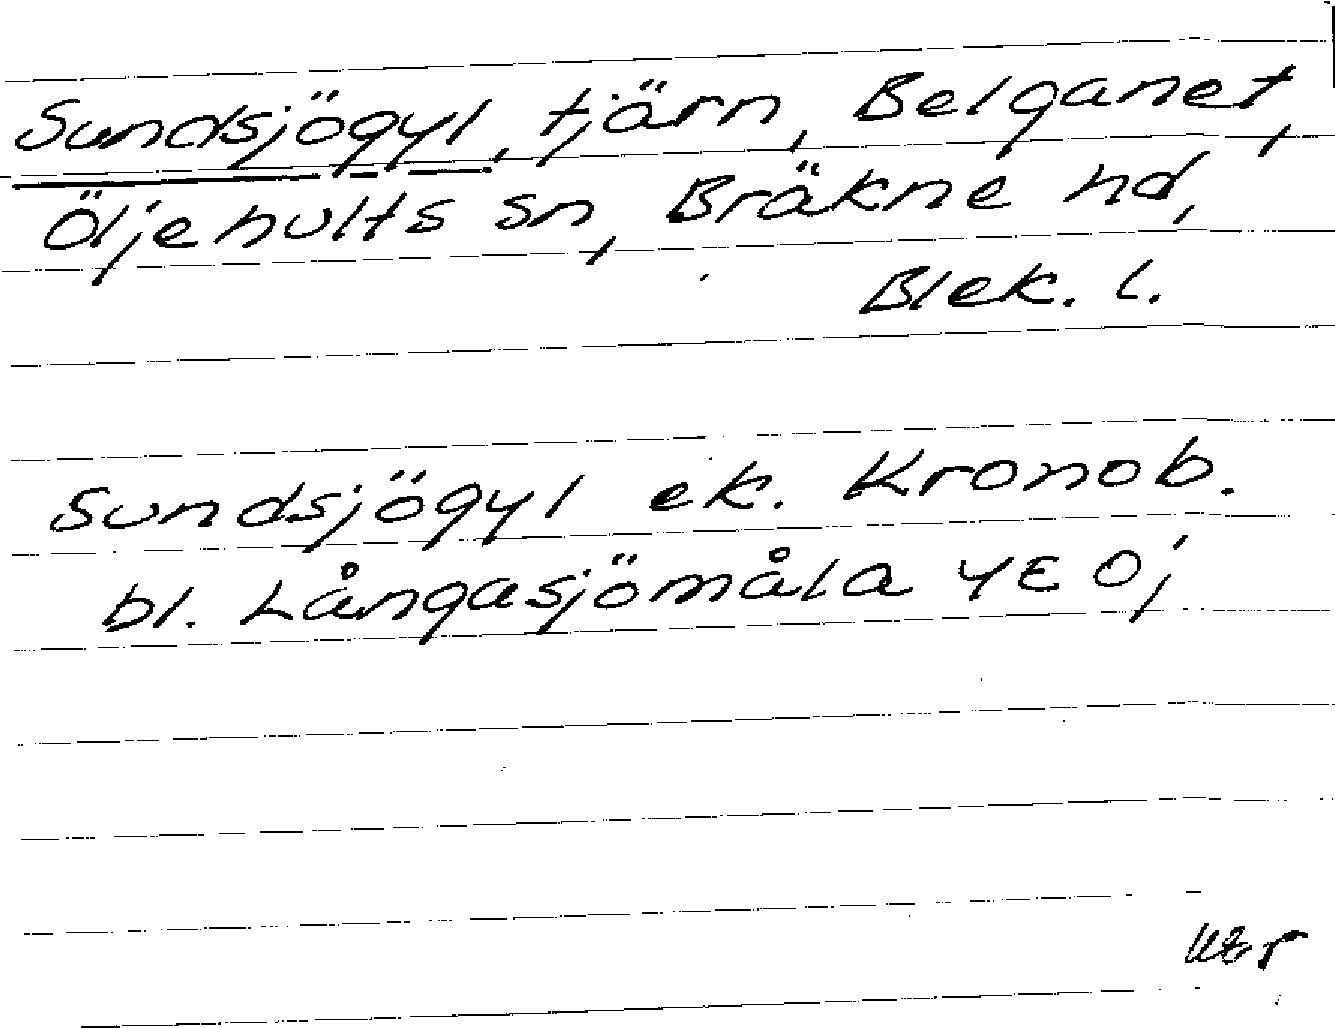 Sundsjögyl, tjärn, Belganet,
Öljehults sn, Bräkne hd,
Blek. l.
Sundsjögyl ek. Kronob.
bl. Långasjömåla 4E 0j